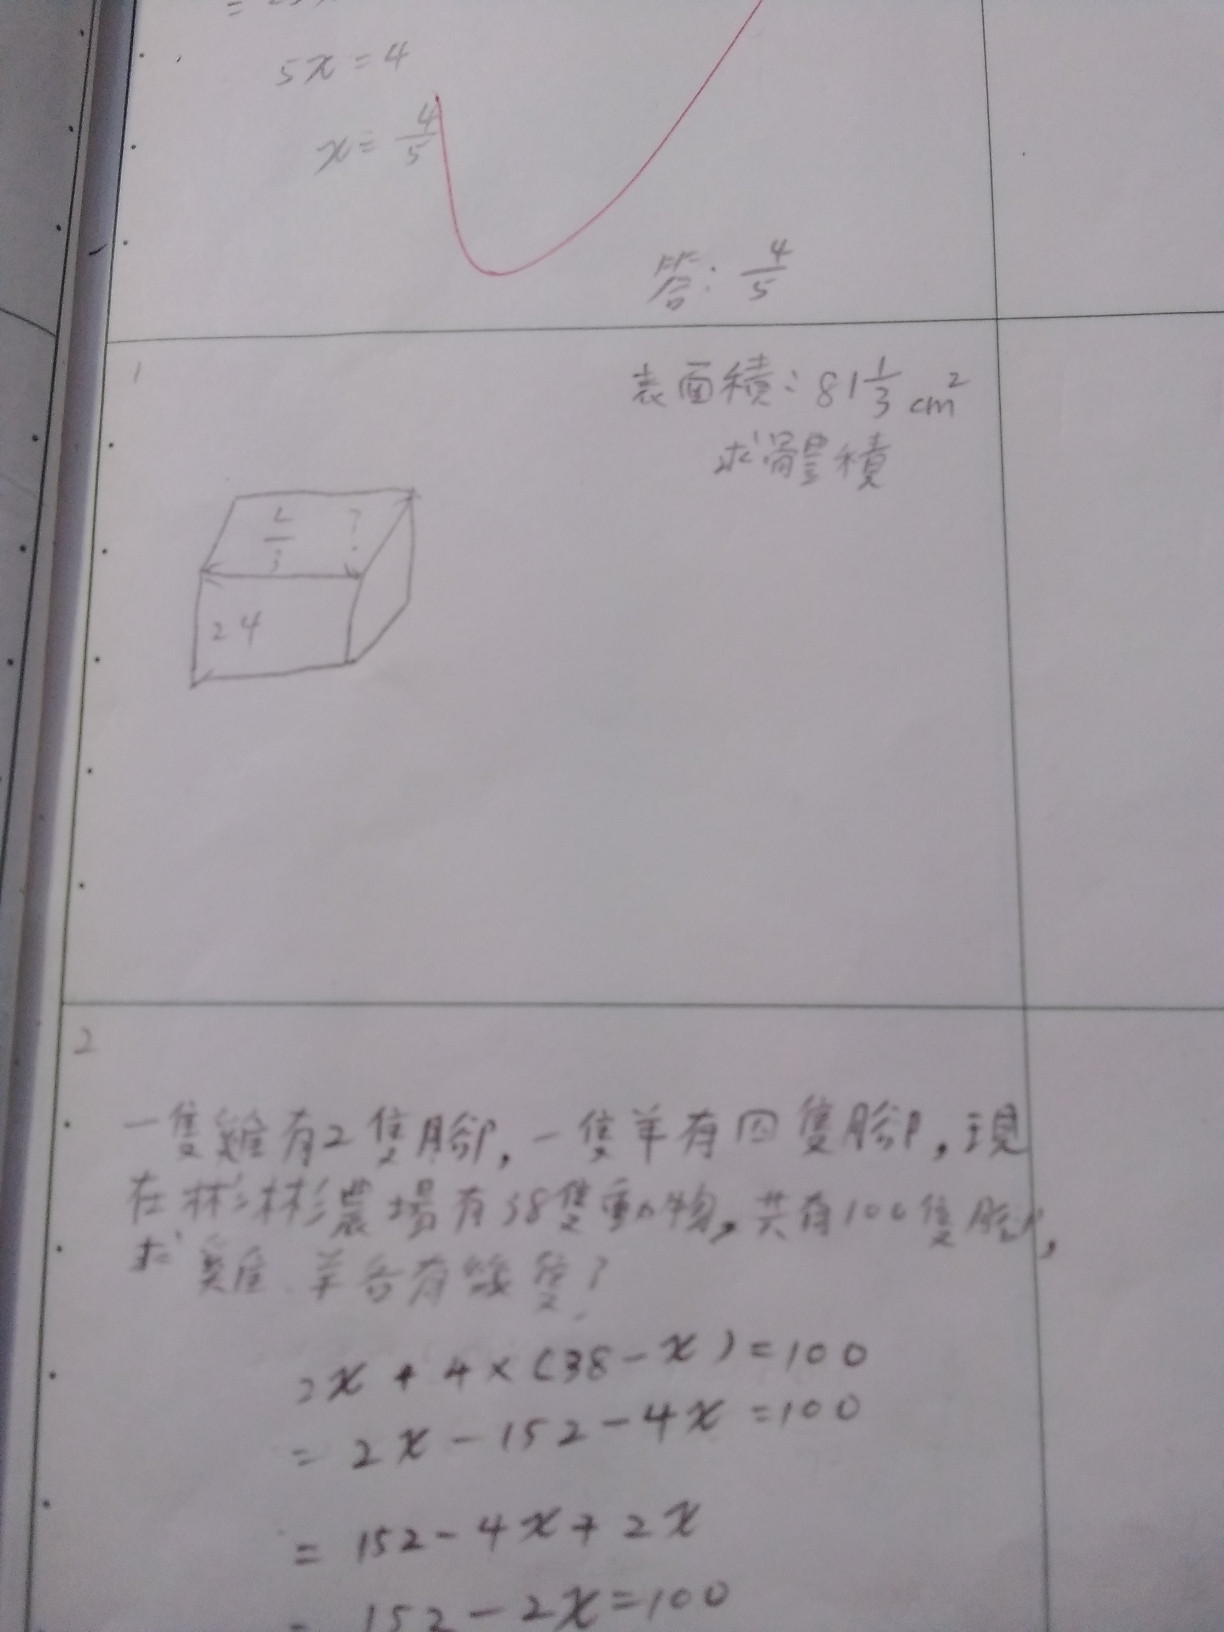 5x=4
x= 4/5
答: 4/5
1
表面積:81 1/3 cm²
求體積
?
24
2
一隻雞有2隻腳,一隻羊有四隻腳,現
在彬彬農場有38隻動物,共有100隻腳,
求雞、羊各有幾隻?
2x+4×(38-x)=100
= 2x-152-4x=100
= 152-4x+2x
= 152-2x=100